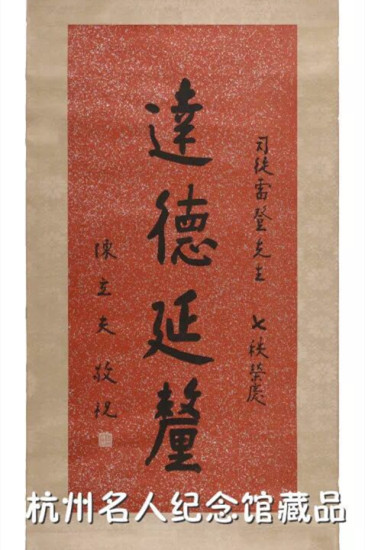 司徒雷登先生 七秩榮慶
達德延釐
陳立夫 敬祝
杭州名人纪念馆藏品